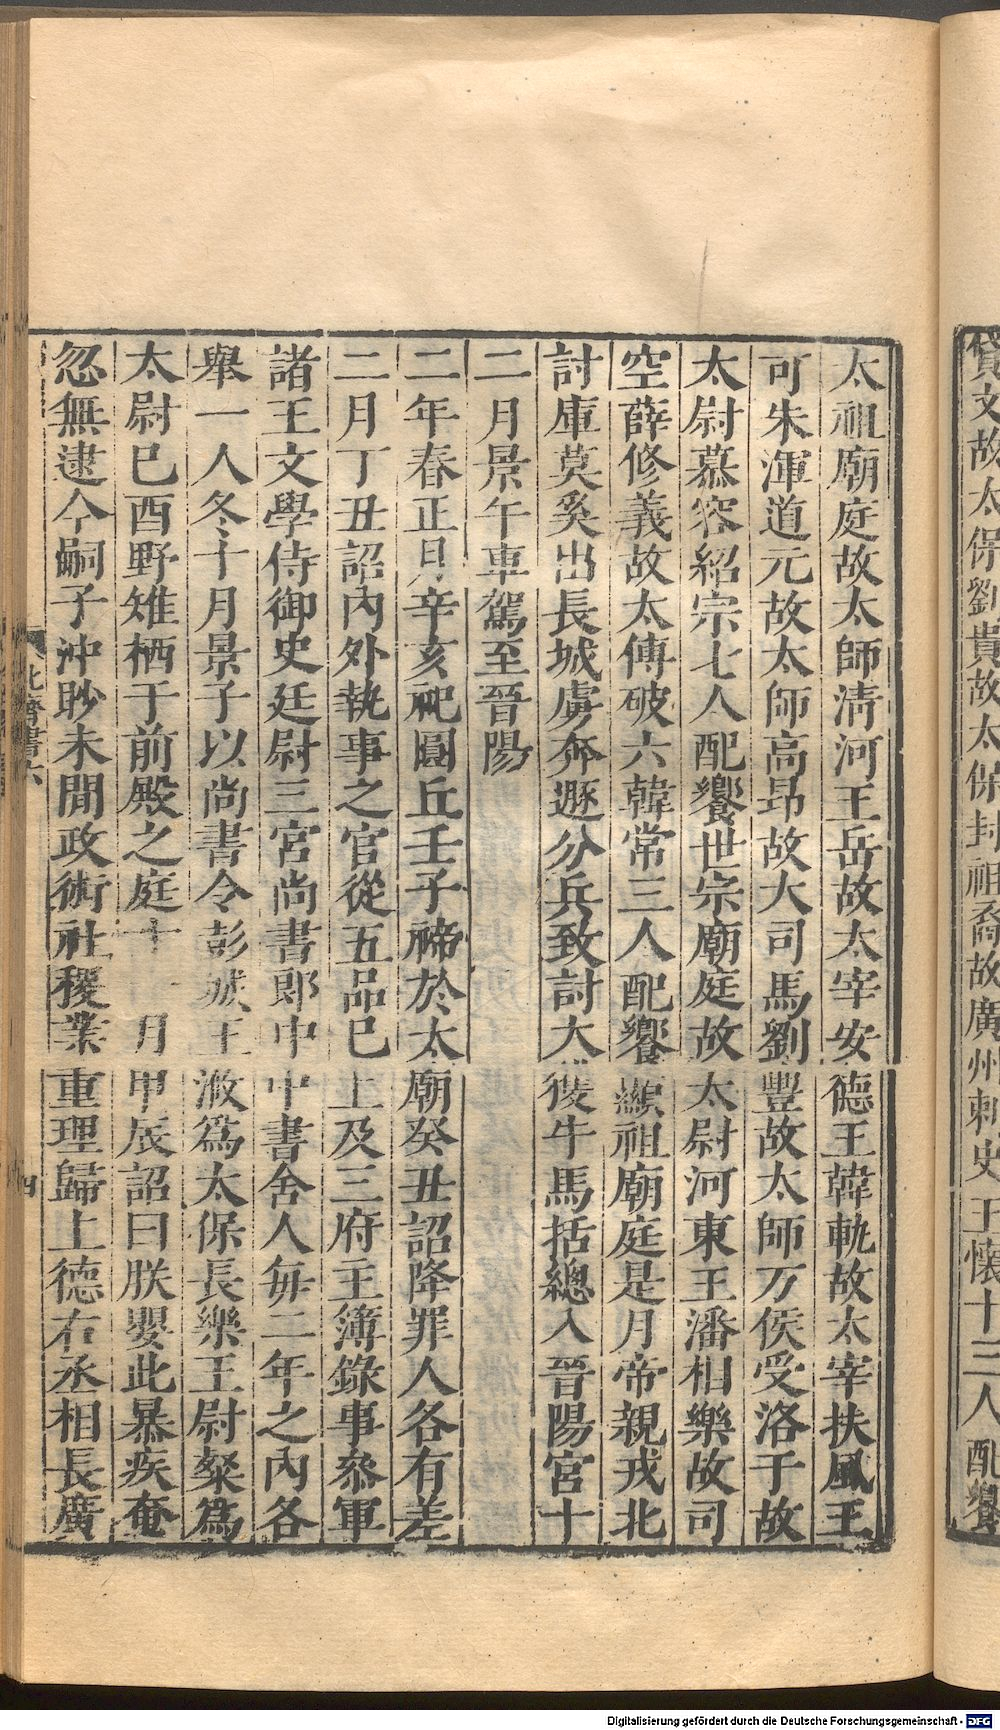 貸文故太保劉貴故太保封祖裔故廣州刺史王懷十三人配饗
太祖廟庭故太師淸河王岳故太宰安德王韓軌故太宰扶風王
可朱渾道元故太師高昻故大司馬劉豐故太師万俟受洛干故
太尉慕容紹宗七人配饗世宗廟庭故太尉河東王潘相樂故司
空薛修義故太傅破六韓常三人配饗顯祖廟庭是月帝親戎北
討庫莫奚出長城虜奔遯分兵致討大獲牛馬括總入晉陽宮十
二月景午車駕至晉陽
二年春正月辛亥祀圜丘壬子禘於太廟癸丑詔降罪人各有差
二月丁丑詔內外執事之官從五品已上及三府主簿錄事參軍
諸王文學侍御史廷尉三官尚書郎中中書舍人每二年之內各
舉一人冬十月景子以尚書令彭城王浟爲太保長樂王尉粲爲
太尉已酉野雉栖于前殿之庭十一月甲辰詔曰朕嬰此暴疾奄
忽無逮今嗣子沖眇未閒政術社稷業重理歸上德右丞相長廣
北齊書六
四
Digitalisierung gefördert durch die Deutsche Forschungsgemeinschaft - DFG